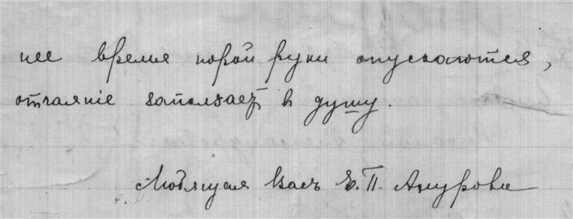 нее время порой руки опускаются,
отчаяніе заползает в душу.
Любящая Васъ Е. П. Анурова